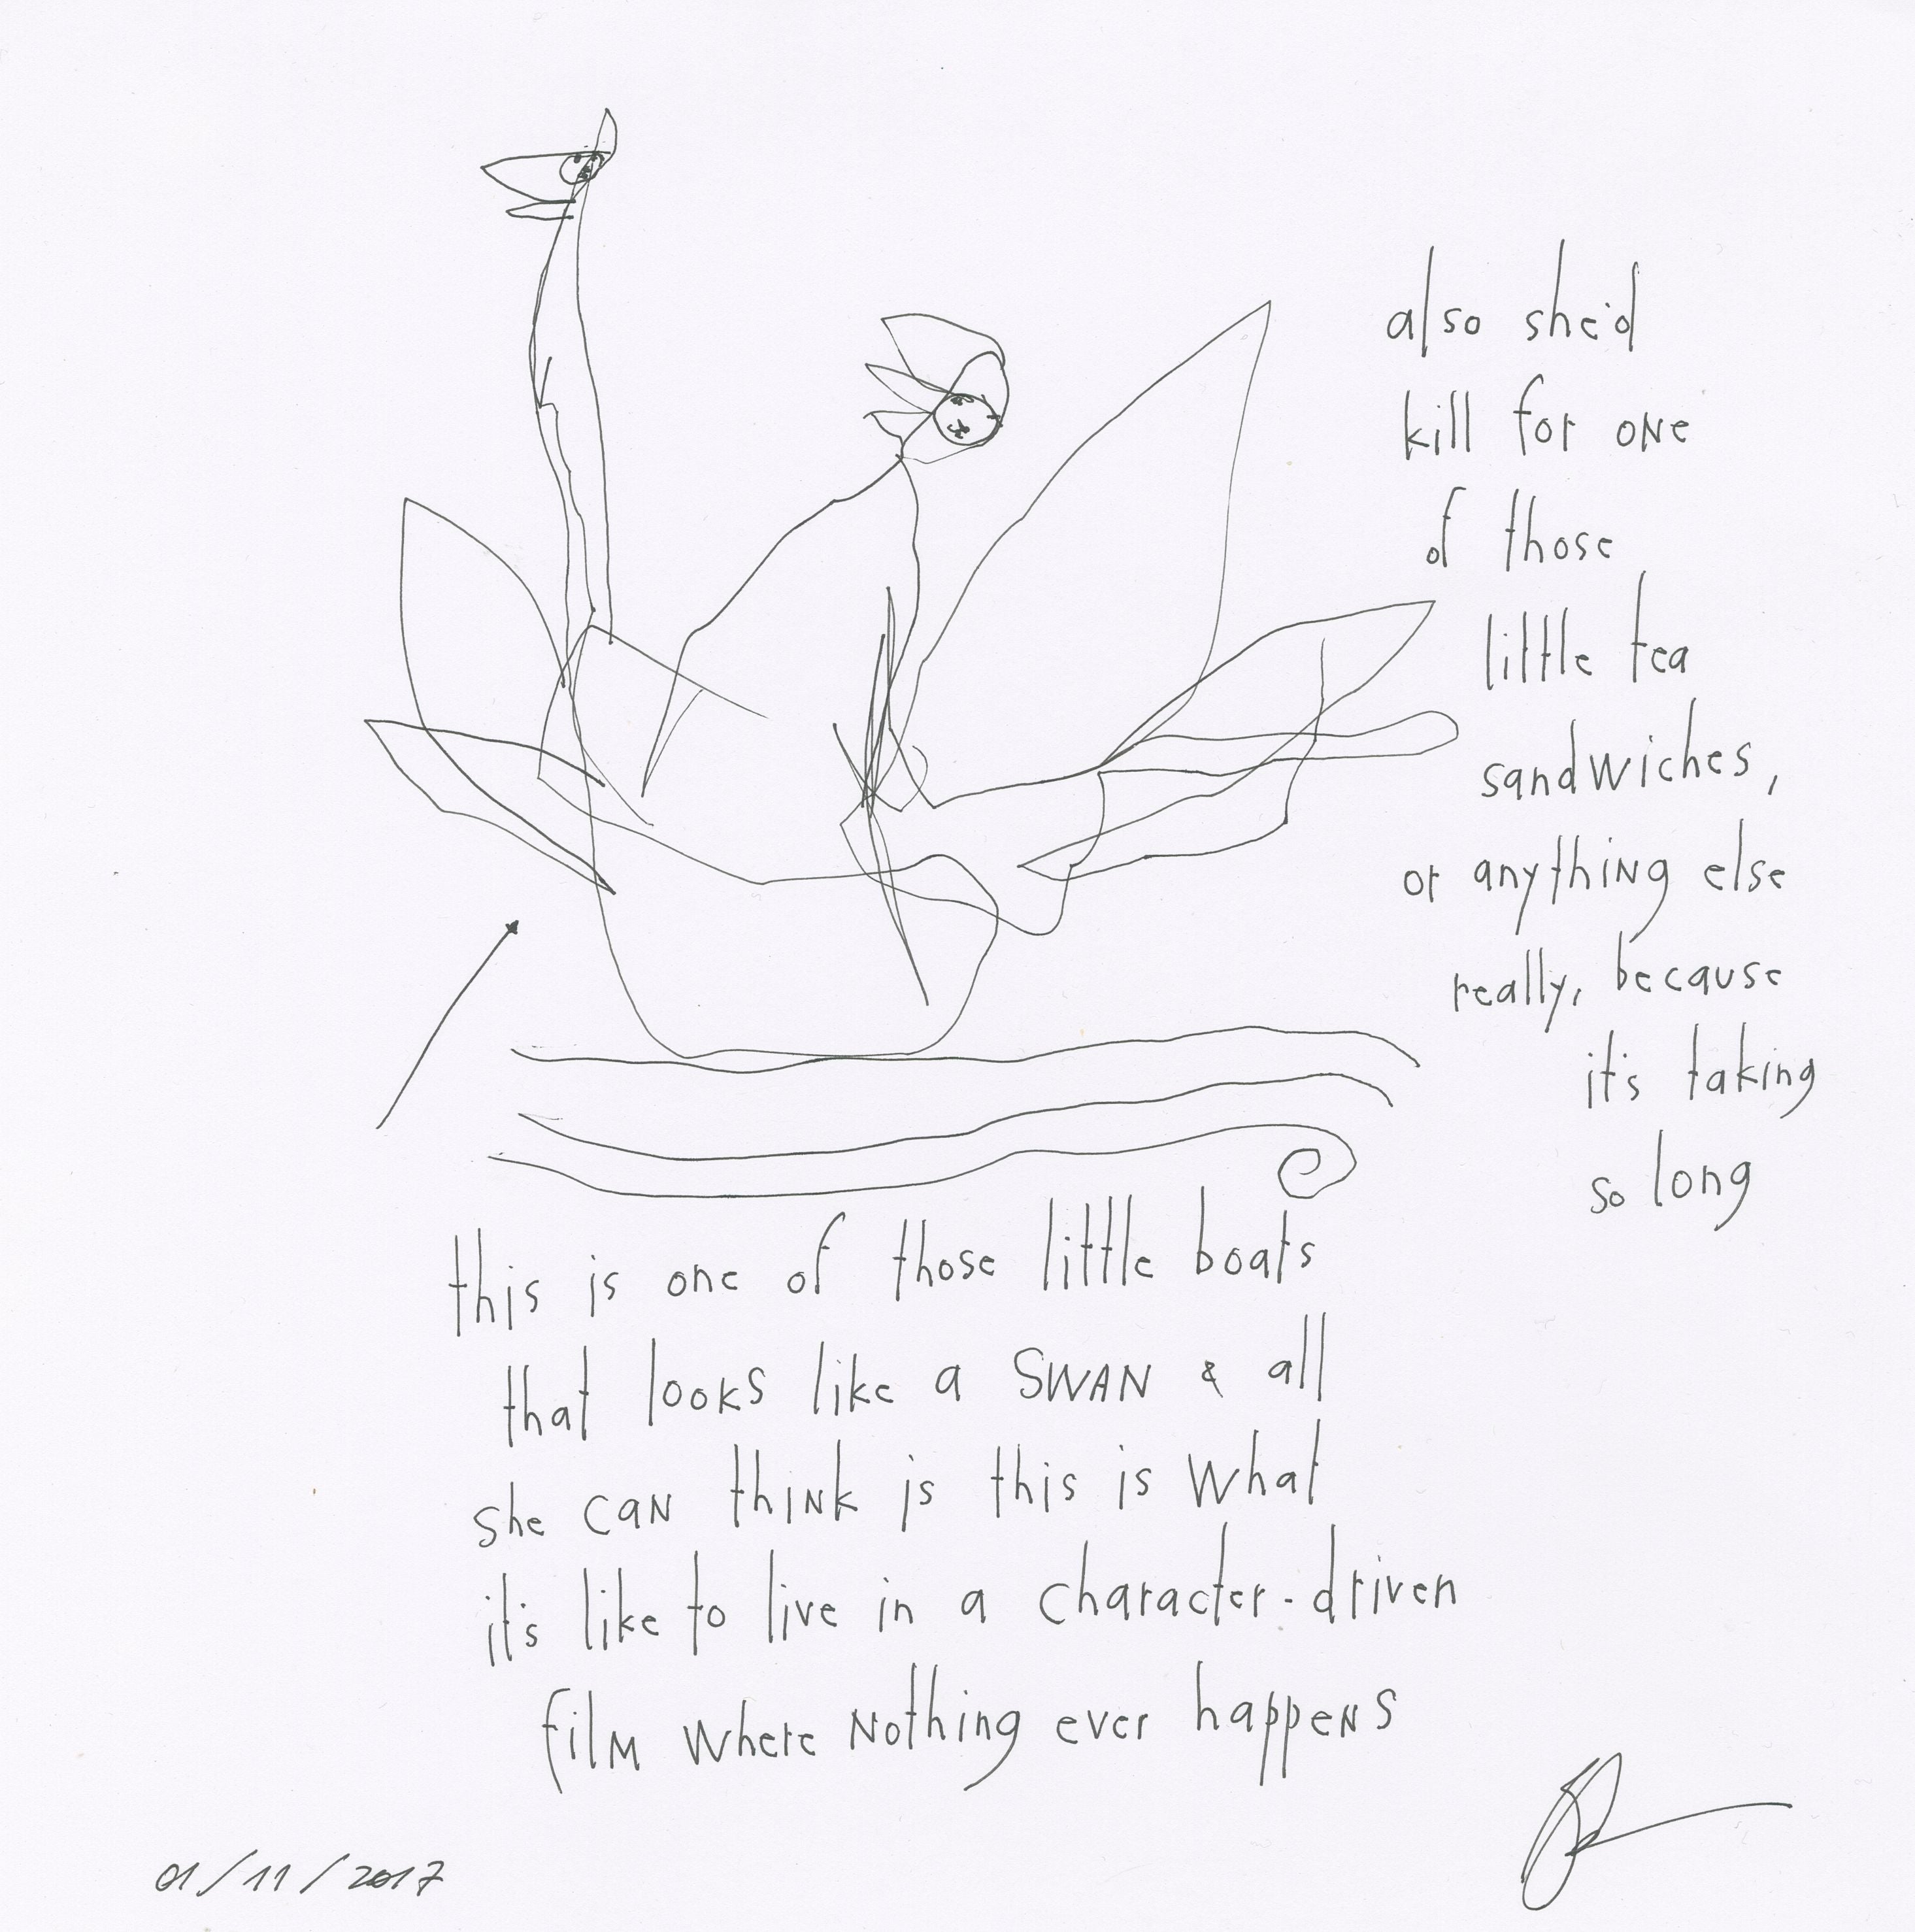 also she'd
kill for one
of those
little tea
sandwiches,
or anything else
really, because
it's taking
so long
this is one of those little boats
that looks like a SWAN & all
she can think is this is what
it's like to live in a character-driven
film where nothing ever happens
01/11/2017